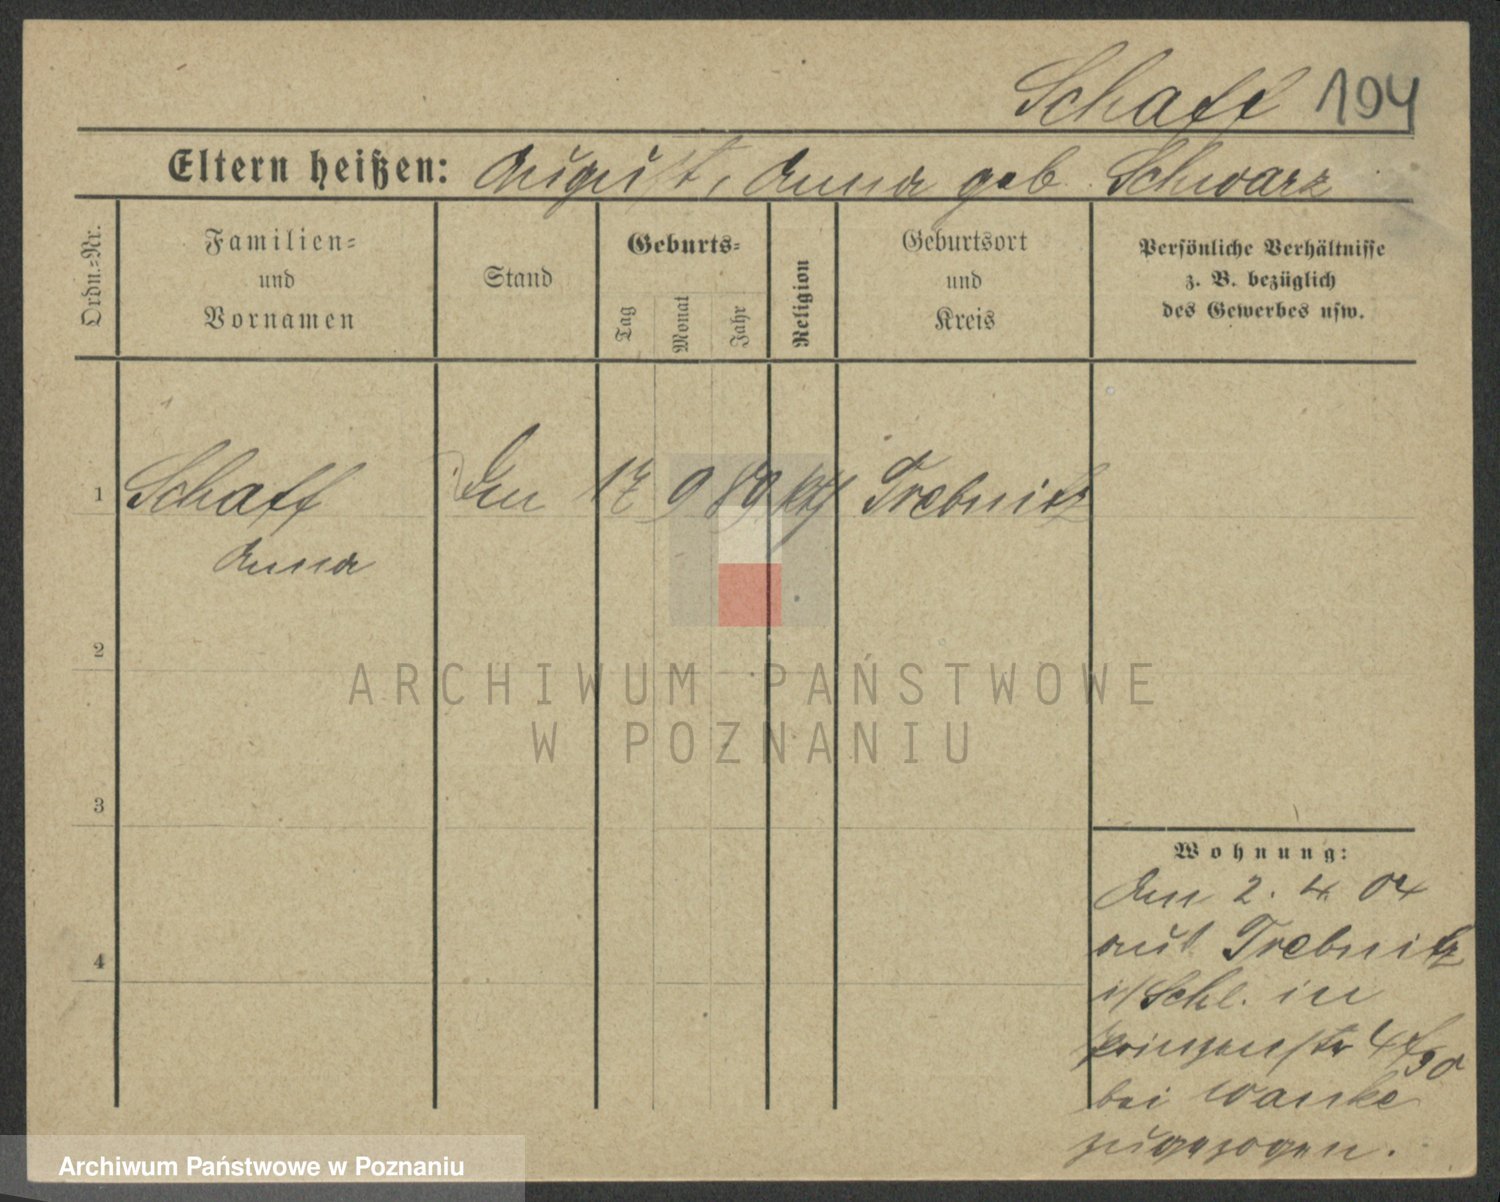 Schaff 194
Eltern heißen: August, Anna geb. Schwarz
Ordn.-Nr.
Familien-
und
Vornamen
Stand
Geburts-
Tag
Monat
Jahr
Religion
Geburtsort
und
Kreis
Persönliche Verhältnisse
z. B. bezüglich
des Gewerbes usw.
1 Schaff 17 9 89 kth Trebnitz
Anna
2
ARCHIWUM PAŃSTWOWE
W POZNANIU
3
Wohnung:
4
Am 2. 4. 04
aus Trebnitz
i/Schl. in
Prinzenstr
bei Wanke
zugezogen.
Archiwum Państwowe w Poznaniu